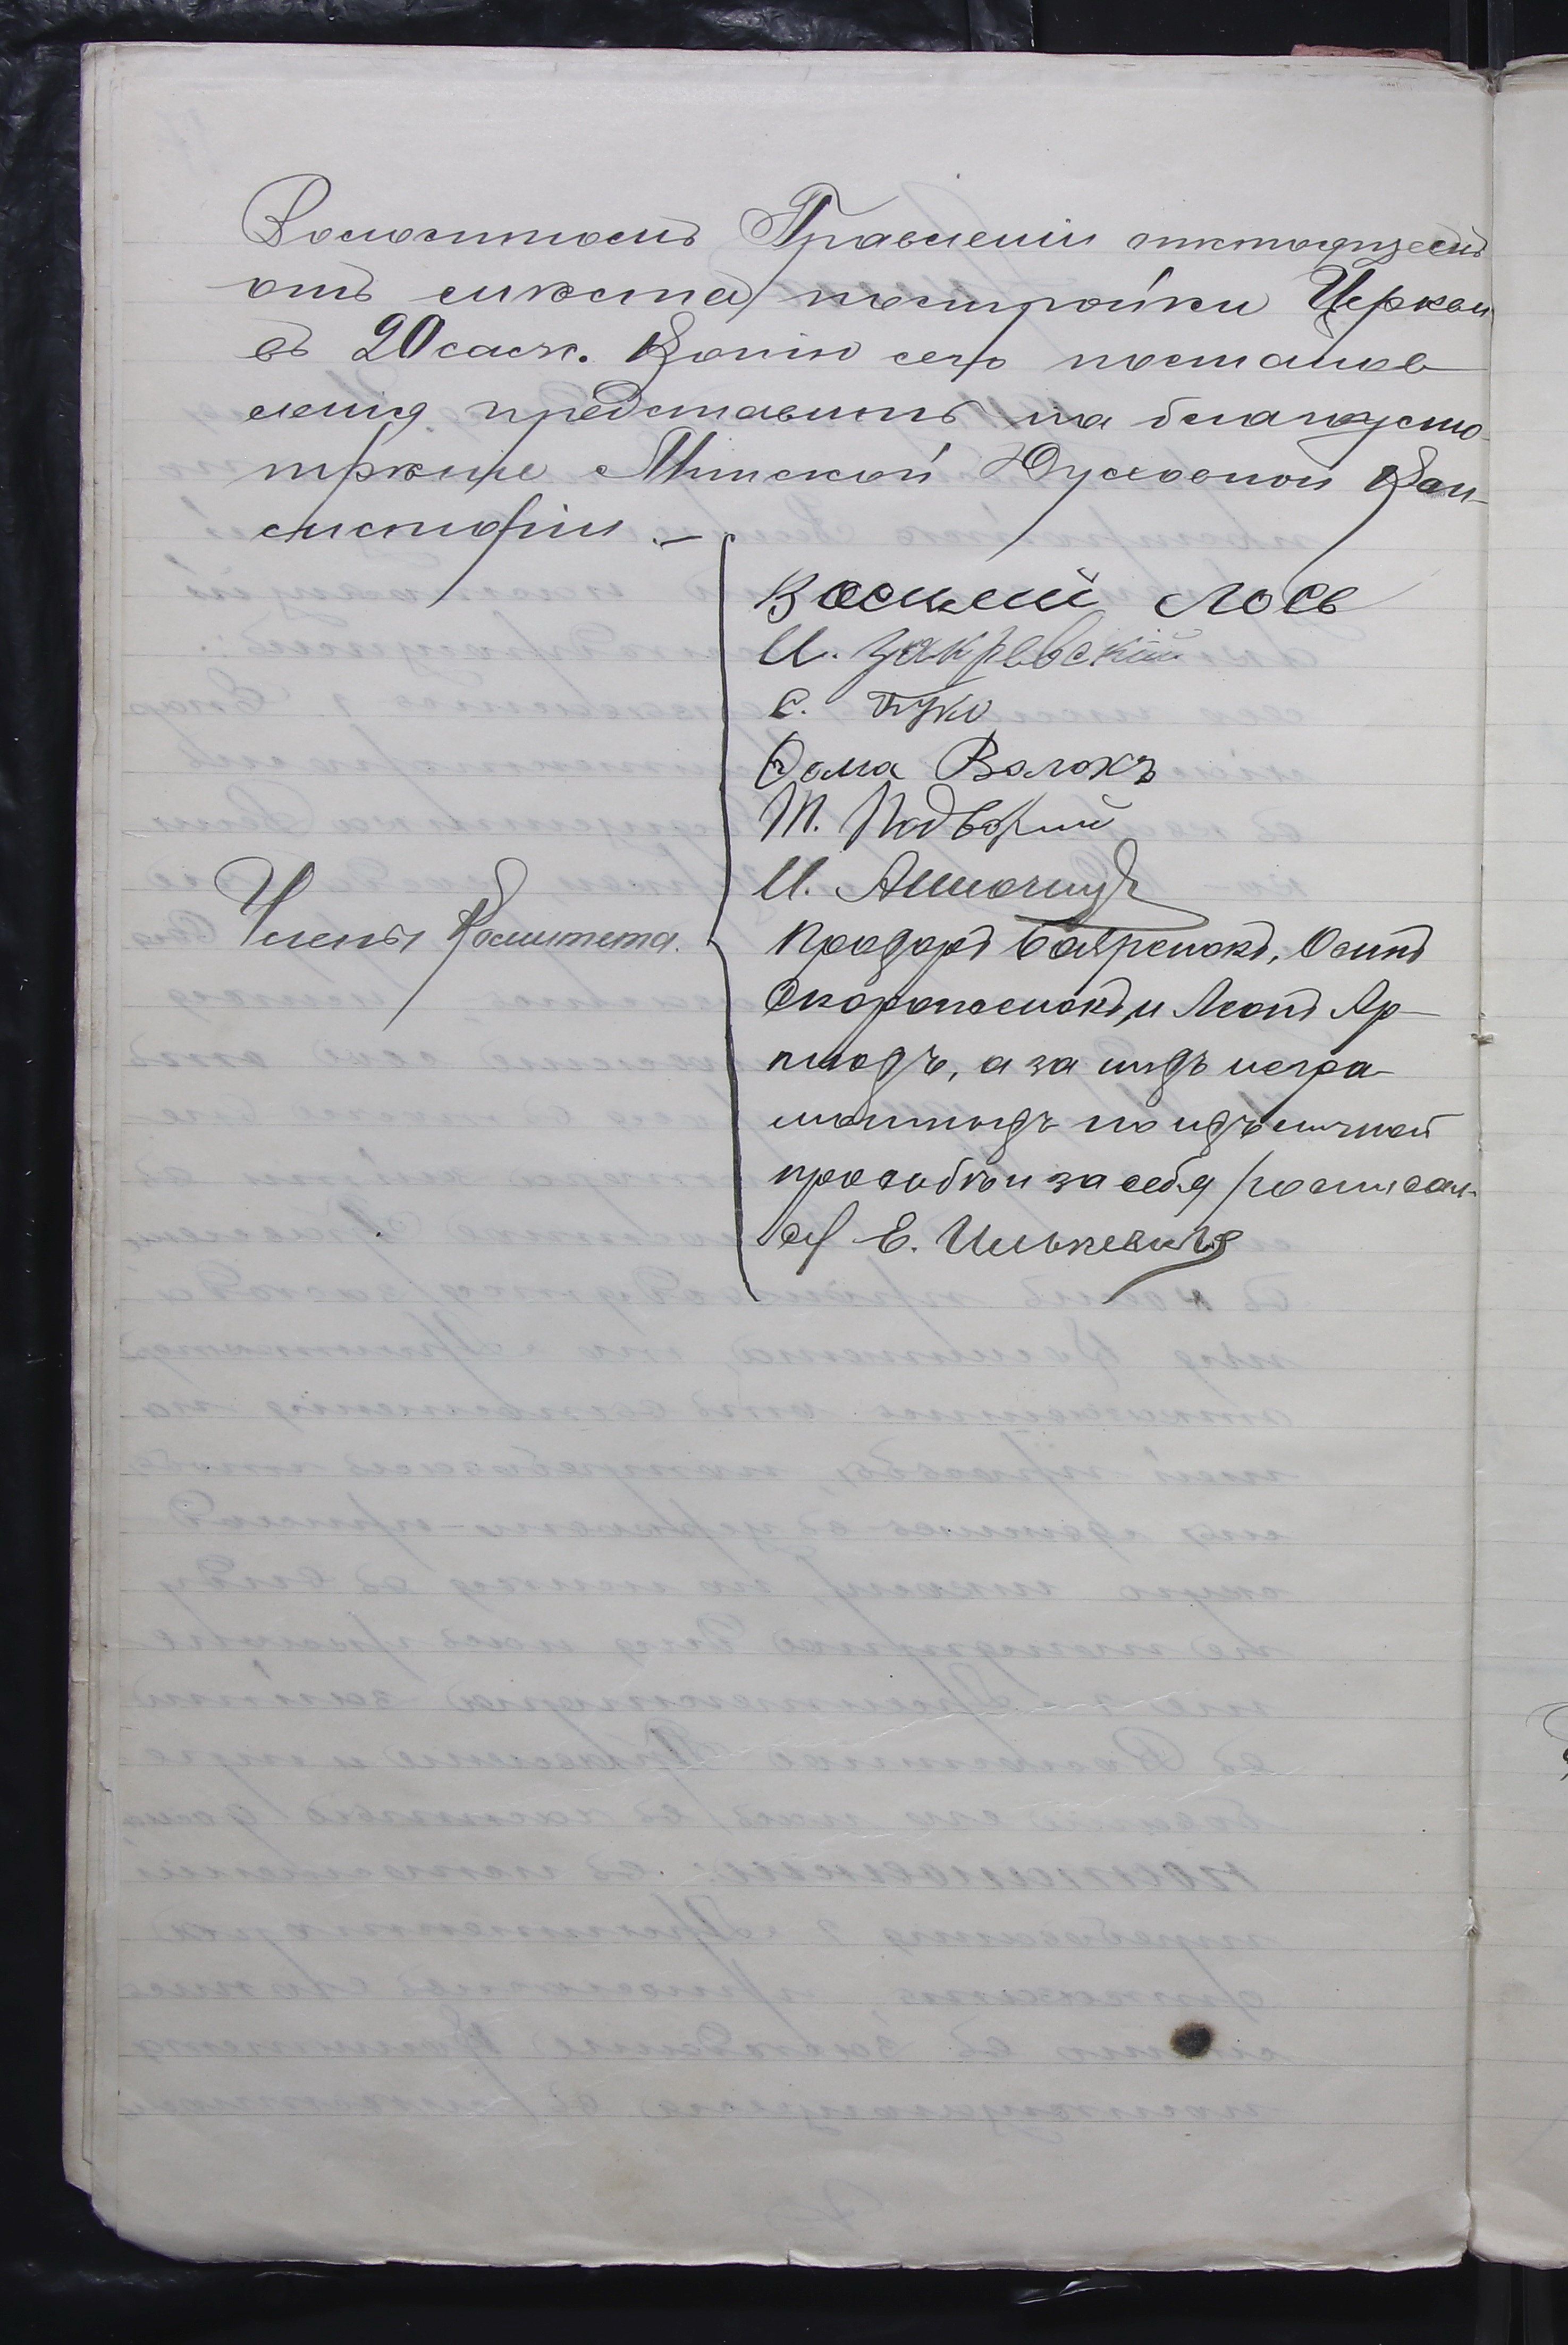 Волостномъ Правленіи отстоящемъ
отъ мѣста постройки Церкви
въ 20 саж. Копію сего постанов
ленія представить на благоусмо-
трѣніе Минской Духовной Кон-
систоріи. —
Василій Лось
И. Закревскій
С. Буко
Ѳома Волохъ
М. Подворный
И.
Члены Комитета.
Прохоръ Бояренокъ, Осипъ
и Леонъ Яр-
а за нихъ негра-
мотныхъ по ихъ личной
просьбѣ и за себя росписал-
ся Е. Илькевичъ